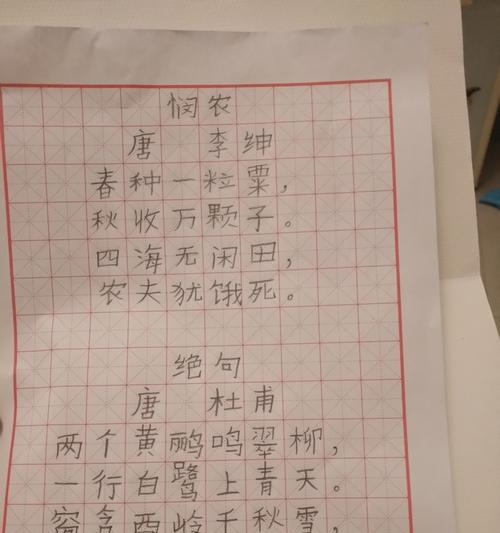 悯农
唐 李绅
春种一粒粟，
秋收万颗子。
四海无闲田，
农夫犹饿死。
绝句
唐 杜甫
两个黄鹂鸣翠柳，
一行白鹭上青天。
窗含西岭千秋雪，